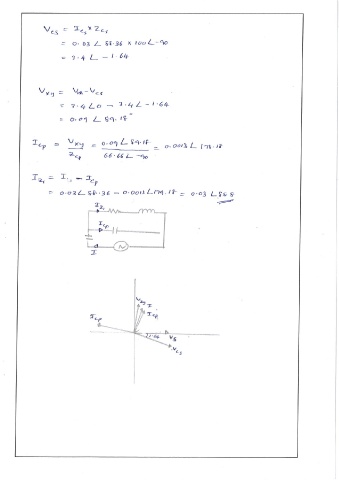 Vcs = Ics × Zcs
= 0.03 ∠ 88.36 × 100 ∠ -90
= 3.4 ∠ -1.64
Vxy = VR - Vcs
= 3.4 ∠0 - 3.4 ∠ -1.64
= 0.09 ∠ 89.18°
Icp = Vxy / Zcp = 0.09 ∠ 89.18 / 66.66 ∠ -90 = 0.0013 ∠ 179.18
= 0.03 ∠ 88.36 - 0.0013 ∠ 179.18 = 0.03 ∠
Icp
I
Vxy I
Icp
VR
Vcs